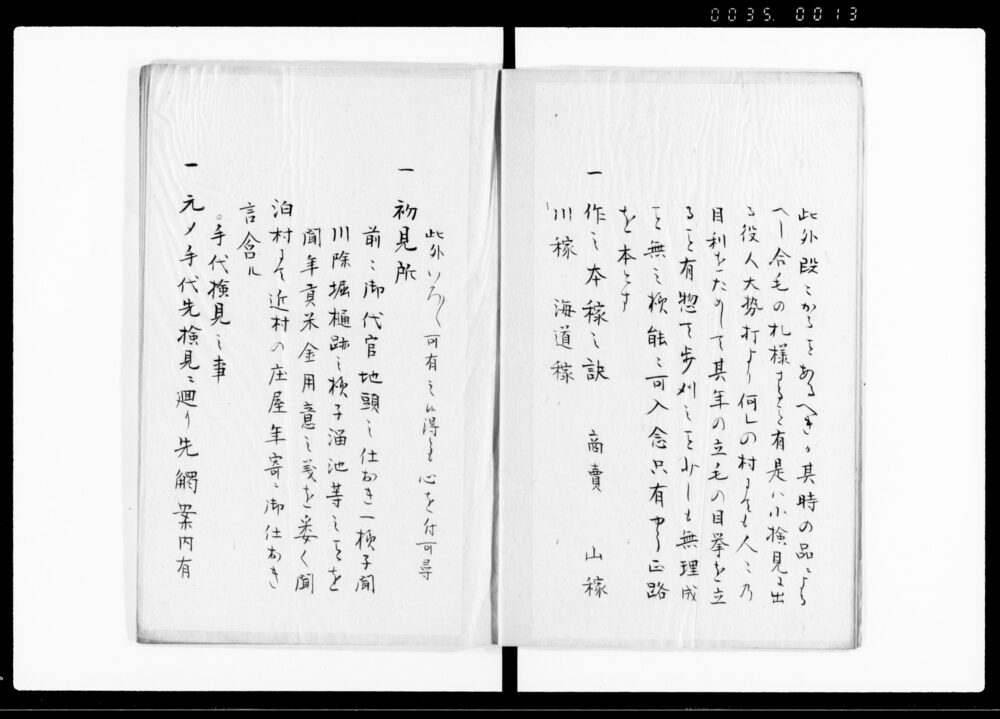 0035.0013
此外段〻かることあるへきか其時の品による
へし合毛の札様することも有是ハ小検見ニ出
る役人大勢打より何レの村にても人〻乃
目利をためして其年の立毛の目挙を立
ること有惣て歩刈之ことハ少しも無理成
こと無之様能〻可入念只有やうニ正路
を本とす
一 作之本稼之訣 商賣 山稼
川稼 海道稼
此外いろ〱可有之候得とも心を付可尋
一 初見所
前〻御代官地頭之仕おき一様子聞
川除堀樋跡之様子溜池等之ことを
聞年貢米金用意之義を委く聞
泊村にて近村の庄屋年寄〻御仕おき
言含ル
。手代検見之事
一 元〆手代先検見〻廻り先觸案内有